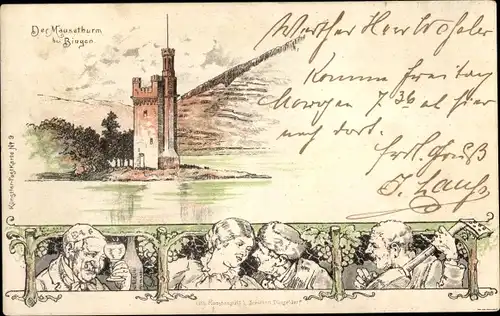 Der Mausethurm
bei Bingen.
Künstler-Postkarte No 9
Werther Herr
Komme Freitag
Morgen 7.36 ab hier
nach dort.
Frdl. Gruß
J. Lauf